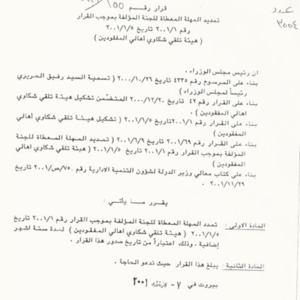 عدد
٢٠٠٤
قرار رقم ١٥٥
تمديد المهلة المعطاة للجنة المؤلفة بموجب القرار
رقم ٢٠٠١/١ تاريخ ٢٠٠١/١/٥
( هيئة تلقي شكاوي اهالي المفقودين )
ان رئيس مجلس الوزراء ،
بناء على المرسوم رقم ٤٣٣٥ تاريخ ٢٠٠٠/١٠/٢٦ ( تسمية السيد رفيق الحريري
رئيساً لمجلس الوزراء )
بناء على القرار رقم ٤٢ تاريخ ٢٠٠٠/١٢/٢٠ المتضمن تشكيل هيئة تلقي شكاوي
اهالي المفقودين ) .
بناء على القرار رقم ٢٠٠١/١ تاريخ ٢٠٠١/١/٥ ( تشكيل هيئة تلقي شكاوي اهالي
المفقودين )
بناء على القرار رقم ٢٠٠١/٦٩ تاريخ ٢٠٠١/٦/٩ ( تمديد المهلة المعطاة للجنة
المؤلفة بموجب القرار رقم ٢٠٠١/١ تاريخ ٢٠٠١/١/٥ ( هيئة تلقي شكاوي اهالي
المفقودين )
بناء على كتاب معالي وزير الدولة لشؤون التنمية الادارية رقم ٧٥٠/ص/٢٠٠١ تاريخ
٢٠٠١/١١/٢٩ .
يقرر ما يأتي :
المادة الاولى : تمدد المهلة المعطاة للجنة المؤلفة بموجب القرار رقم ٢٠٠١/١ تاريخ
٢٠٠١/١/٥ ( هيئة تلقي شكاوي اهالي المفقودين ) لمدة ستة اشهر
اضافية . وذلك اعتباراً من تاريخ صدور هذا القرار .
المادة الثانية : يبلغ هذا القرار حيث تدعو الحاجة .
بيروت في ٧ - 2001